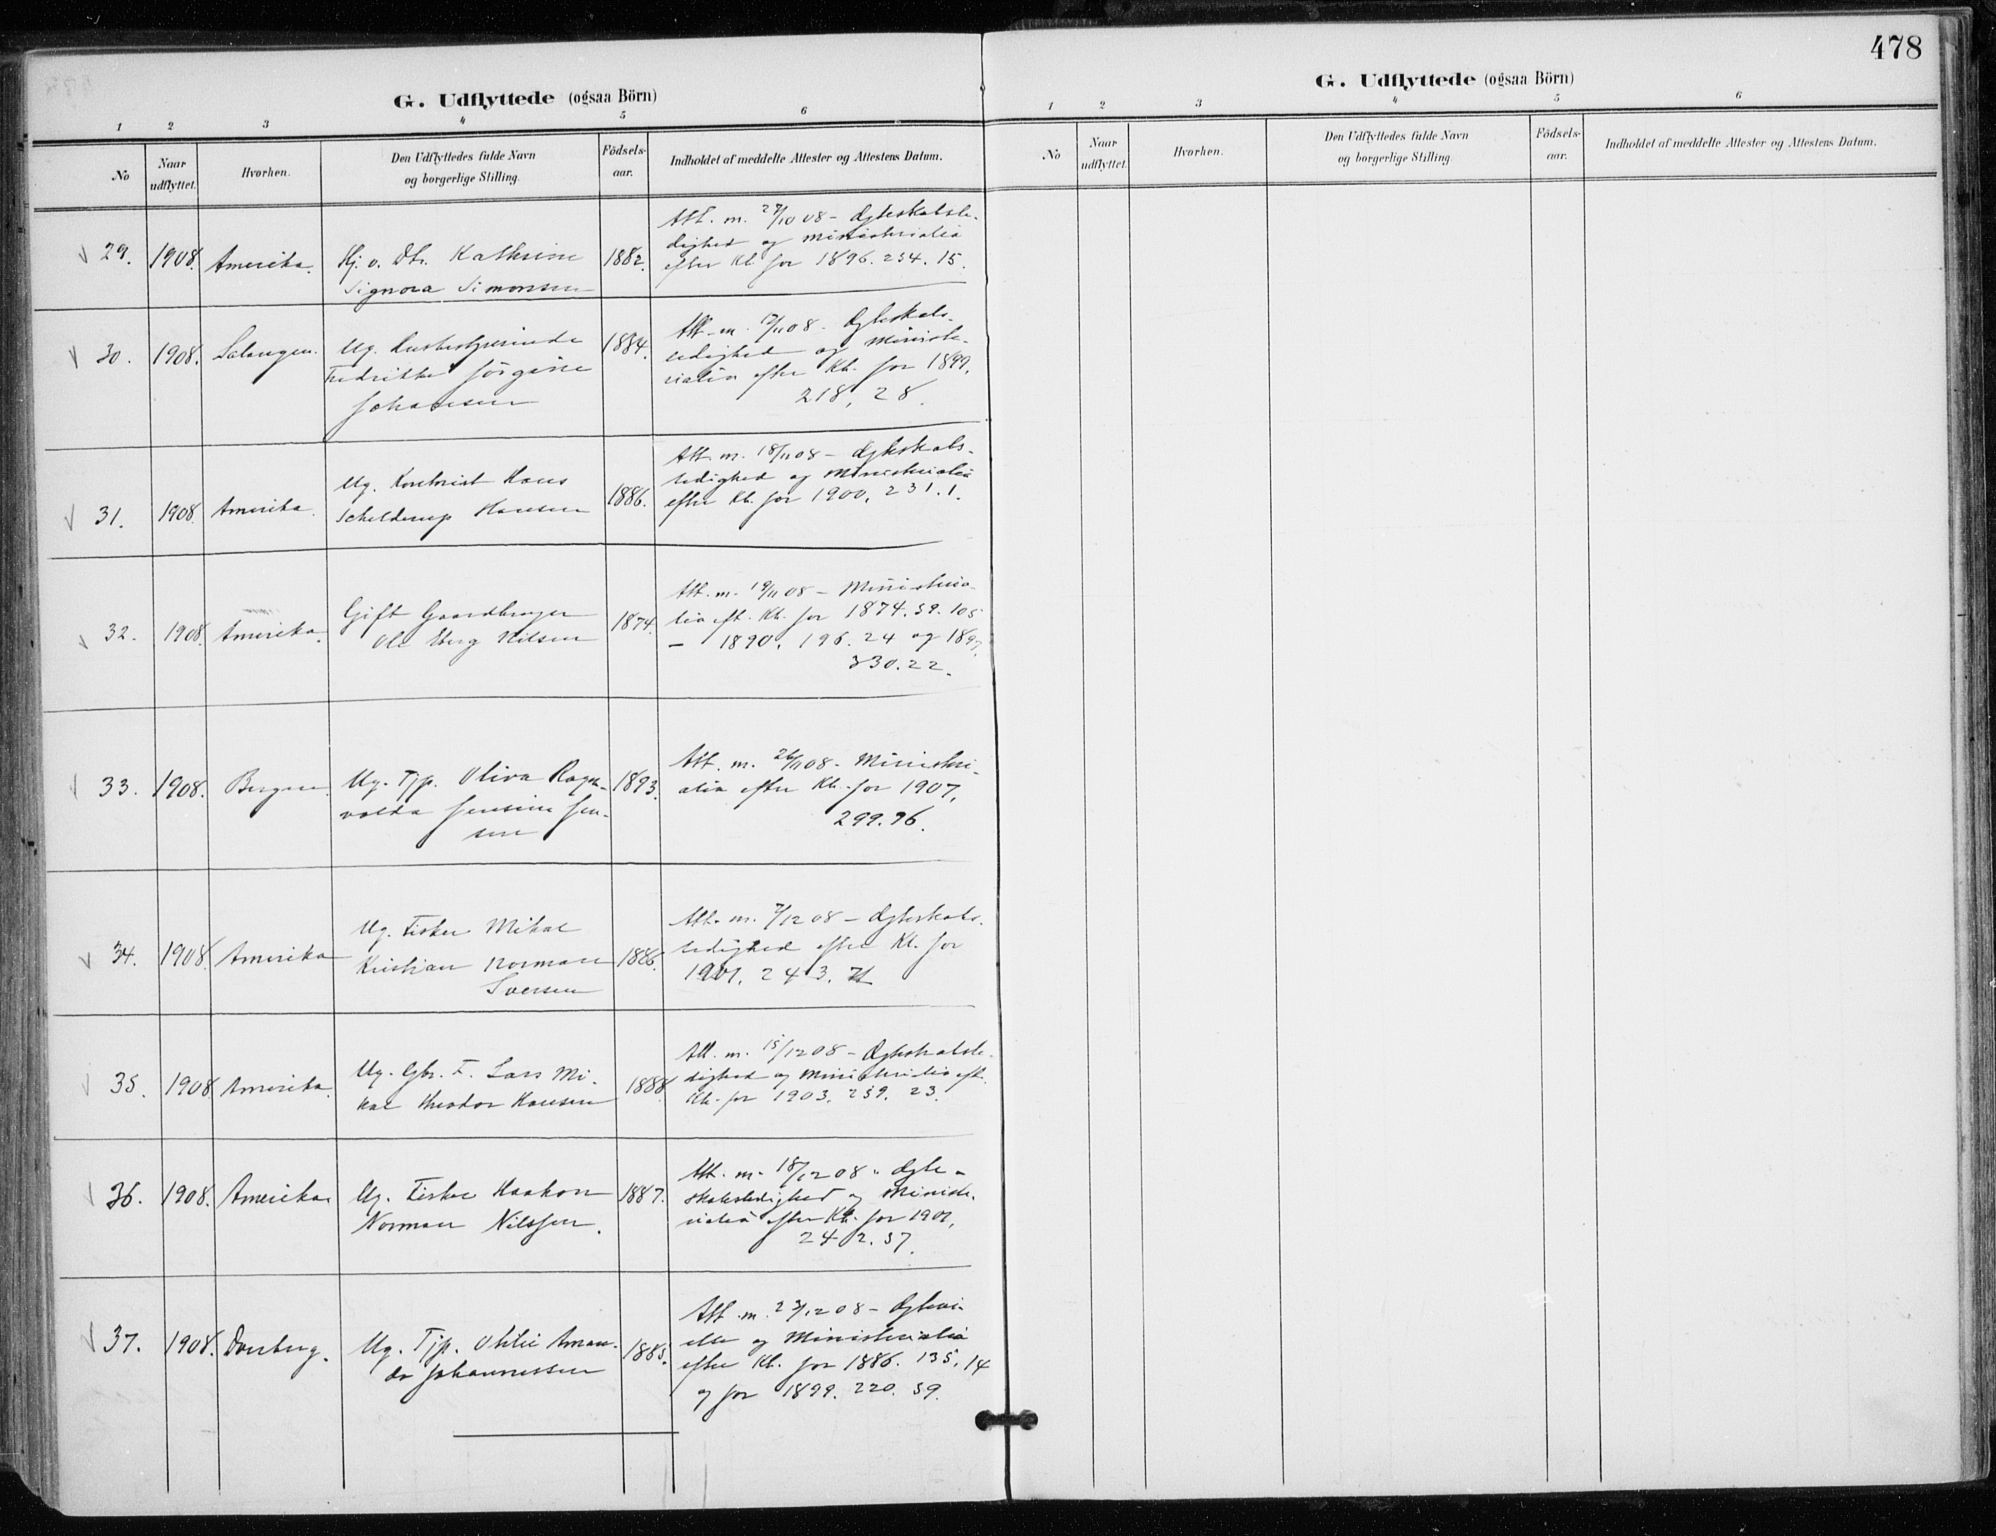 478
G. Udflyttede (ogsaa Börn)
1 2 3 4 5 6
No
Naar udflyttet.
Hvorhen.
Den Udflyttedes fulde Navn
og borgerlige Stilling.
Födsels-
aar.
Indholdet af meddelte Attester og Attestens Datum.
29. 1908. Amerika. Hj. v. Dtr. Kathrine
Signora Simonsen
1882.
Att. m. 27/10 08 - Ægteskabsle-
dighed og ministerialia
efter Kb. for 1896. 234. 15.
30. 1908. Salangen. Ug.
Fredrikke Jörgine
Johansen
1884.
Att. m. 08 - Ægteskabs-
ledighed og ministe-
rialia efter Kb. for 1899,
218, 28.
31. 1908. Amerika. Ug. Kontorist Hans
Schelderup Hansen
1886.
Att. m. 18/11 08 - Ægteskabs-
ledighed og Ministerialia
efter Kb. for 1900, 231. 1.
32. 1908. Amerika. Gift Gaardbruger
Ole Nilsen
1874.
Att. m. 19/11 08 - Ministeria-
lia eft. Kb. for 1874. 59. 105
- 1890. 196. 24 og
330. 22.
33. 1908. Bergen. Ug. Tjp. Oliva Ragn-
valda Jensine Jen-
sen
1893.
Att. m. 26/11 08 - Ministeri-
alia efter Kb. for 1907,
299. 96.
34. 1908. Amerika Ug. Fisker Mikal
Kristian Norman
Iversen
1886.
Att. m. 7/12 08 - Ægteskabs-
ledighed efter Kb. for
1901. 243.
35. 1908 Amerika. Ug. Gbr. F. Lars Mi-
kal Theodor Hansen
1888
Att. m. 15/12 08 - Ægteskabsle-
dighed og ministerialia eft.
Kb. for 1903. 259. 23.
36. 1908. Amerika. Ug. Fisker Haakon
Norman Nilssen.
1887.
Att. m. 18/12 08 - Ægte-
skabsledighed og Ministe-
rialia efter Kb. for 1901,
242. 37.
37. 1908. Dverberg. Ug. Tjp. Otilie Aman-
da Johannessen
1885.
Att. m. 23/12 08 -
og Ministerialia
efter Kb. for 1886. 135, 14
og for 1899. 220. 59.
G. Udflyttede (ogsaa Börn)
1 2 3 4 5 6
No
Naar
udflyttet.
Hvorhen.
Den Udflyttedes fulde Navn
og borgerlige Stilling.
Födsels-
aar.
Indholdet af meddelte Attester og Attestens Datum.